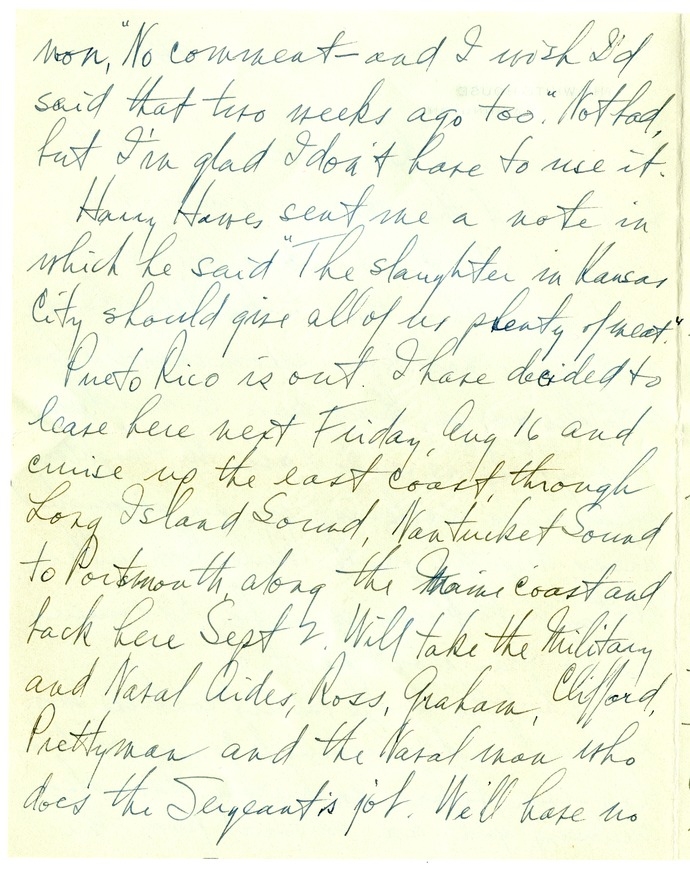 won, "No comment—and I wish I'd
said that two weeks ago too." Not bad,
but I'm glad I don't have to use it.
Harry Hawes sent me a note in
which he said "The slaughter in Kansas
City should give all of us plenty of meat."
Pueto Rico is out. I have decided to
leave here next Friday, Aug 16 and
cruise up the east coast, through
Long Island Sound, Nantucket Sound
to Portsmouth, along the Maine coast and
back here Sept 2. Will take the Military
and Naval Aides, Ross, Graham, Clifford,
Prettyman and the Naval man who
does the Sergeant's job. We'll have no